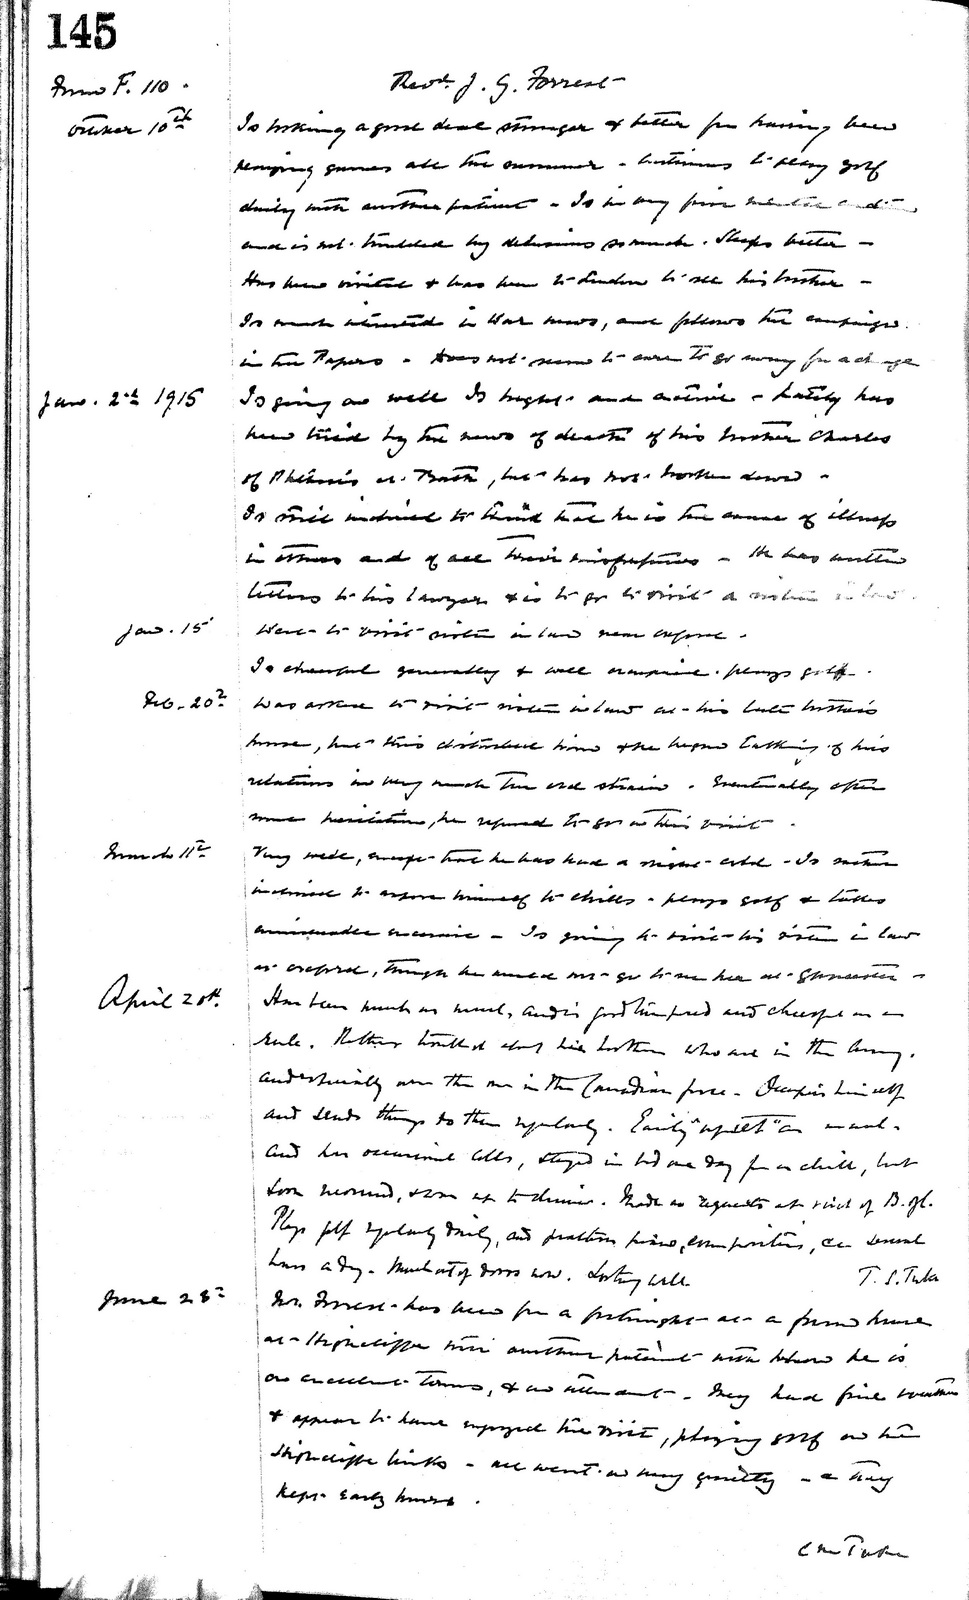 145
From F. 110.
Theod. J. G. Forrest
October 10th
Is looking a good deal stronger & better for having been
playing games all the summer - continues to play golf
daily with another patient - Is in very fine mental
and is not troubled by delusions so much. Sleeps better -
Has been visited & has been to London to see his brother -
Is much interested in War news, and follows the campaign
in the Papers - Does not seem to care to go away for a change
Jan. 2nd 1915
Is going on well Is bright and active - Lately has
been tried by the news of death of his brother Charles
of Phthisis at Bath, but has not broken down -
Is still inclined to think that he is the cause of illness
in others and of all their misfortunes - He has written
letters to his lawyer & is to go to visit a sister in law.
Jan. 15
Went to visit sister in law near Oxford.
Is cheerful generally & well occupied. plays golf.
Feb. 20th
Was asked to visit sister in law at his late brother's
house, but this disturbed him & he began talking of his
relations in very much the old strain. Eventually after
much hesitation, he refused to go on this visit.
March 11th
Very well, except that he has had a slight cold - Is rather
inclined to expose himself to chills - plays golf & takes
considerable exercise - Is going to visit his sister in law
at Oxford, though he would not go to see her at Gloucester -
April 20th.
Has been much as usual, and is good tempered and cheerful as a
rule. Rather troubled about his brothers who are in the Army,
and specially over the one in the Canadian force - Occupies himself
and sends things to them regularly. Easily "upset" as usual -
and has occasional colds, stayed in bed one day for a chill, but
soon recovered, & was up to dinner. Made no requests at visit of B. of C.
Plays golf regularly daily, and practises piano, composition, &c several
hours a day - Much out of doors now. Looking well
T. S. Tuke
June 28th
Mr. Forrest has been for a fortnight at a farm house
at Highcliffe with another patient with whom he is
on excellent terms, & an attendant - They had fine weather
& appear to have enjoyed the visit, playing golf on the
Highcliffe links - all went on very quietly - & they
kept early hours.
C M Tuke